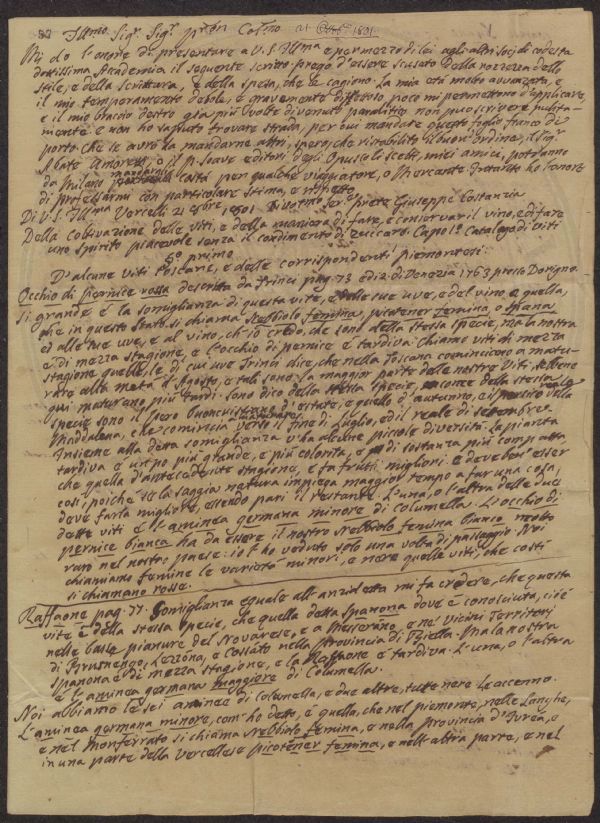 Illmo Sigr. Sigr. pron Colmo
21 Ottbre 1801.
Mi do l'onore di presentare a V.S. Illma e per mezzo di lei agli altri soci di codesta
dottissima Academia il seguente scritto: prego d'essere scusato della rozzezza dello
stile, e della scrittura, e della spesa, che le cagiono. La mia età molto avanzata, e
il mio temperamento debole, e gravemente difettoso, poco mi permettono d'applicare,
e il mio braccio destro già più volte divenuto paralitico non può scrivere pulita-
mente e non ho saputo trovare strada, per cui mandare questo foglio franco di
porto che se avrò la mandarne altri, spero, che ristabilito il buon'ordine, il Sigr.
Abate Amoretti, o il P. Soave editori degli Opuscoli Scelti, miei amici, potranno
da Milano mandarglielo costà per qualche viaggiatore, o Mercante. Frattanto ho l'onore
di professarmi con particolare stima, e rispetto
Di V.S. Illma Vercelli 21 8bre 1801 Divotmo Serre prete Giuseppe Costanzia
Della coltivazione delle viti, e della maniera di fare, e conservar il vino, e di fare
uno spirito piacevole senza il condimento di zuccaro. Capo 1o. Catalogo di viti
§o primo
D'alcune viti toscane, e delle corrispondenti piemontesi.
Occhio di pernice rossa descritta da Trinci pag. 73 ediz. di Venezia 1763 presso Dorigno.
si grande è la somiglianza di questa vite, e delle sue uve, e del vino, e quella,
che in questo Stato si chiama Nebbiolo femina, picotener femina o spana
ed alle sue uve, e al vino, ch'io credo, che sono della stessa specie, ma la nostra
è di mezza stagione, e l'occhio di pernice è tardiva: chiamo viti di mezza
stagione quelle, le di cui uve Trinci dice, che nella Toscana cominciano a matu-
rare alla metà d'Agosto, e tali sono la maggior parte delle nostre viti, sebbene
qui maturano più tardi: sono dico della stessa specie, come della stessa
specie sono il pero buoncristiano d'estate, e quello d'autunno, e il persico nella
Maddalena, che comincia verso il fine di Luglio, ed il reale di settembre.
Insieme alla detta somiglianza v'ha alcune piccole diversità. La pianta
tardiva è un po più grande, e più colorita, e di sostanza più compatta,
che quella d'antecedente stagione, e fa frutti migliori e deve ben esser
così, poiché se la saggia natura impiega maggior tempo a far una cosa,
deve farla migliore, essendo pari il restante. L'una, o l'altra delle due
dette viti è l'aminea germana minore di Columella. L'occhio di
pernice bianca ha da essere il nostro Nebbiolo femina bianco molto
raro nel nostro paese: io l'ho veduto solo una volta di passaggio. Noi
chiamiamo femine le varietà minori, e nere quelle viti, che costì
si chiamano rosse.
Raffaone pag. 77. Somiglianza eguale all'anzidetta mi fa credere, che questa
vite è della stessa specie, che quella detta Spanona dove è conosciuta, cioè
nelle basse pianure del Novarese, e a Messerano, e ne' vicini Territori
di Brusnengo, Lezzona, e Cossato nella provincia di Biella. Ma la nostra
spanona è di mezza stagione, e la Raffaone è tardiva. L'una, o l'altra
è l'aminea germana maggiore di Columella.
Noi abbiamo le sei aminee di Columella, e due altre, tutte nere le accenno.
L'aminea germana minore, com'ho detto, è quella, che nel piemonte, nelle Langhe,
e nel Monferrato si chiama Nebbiolo femina, e nella provincia d'Ivrea, e
in una parte della Vercellese picotener femina, e nell'altra parte, e nel